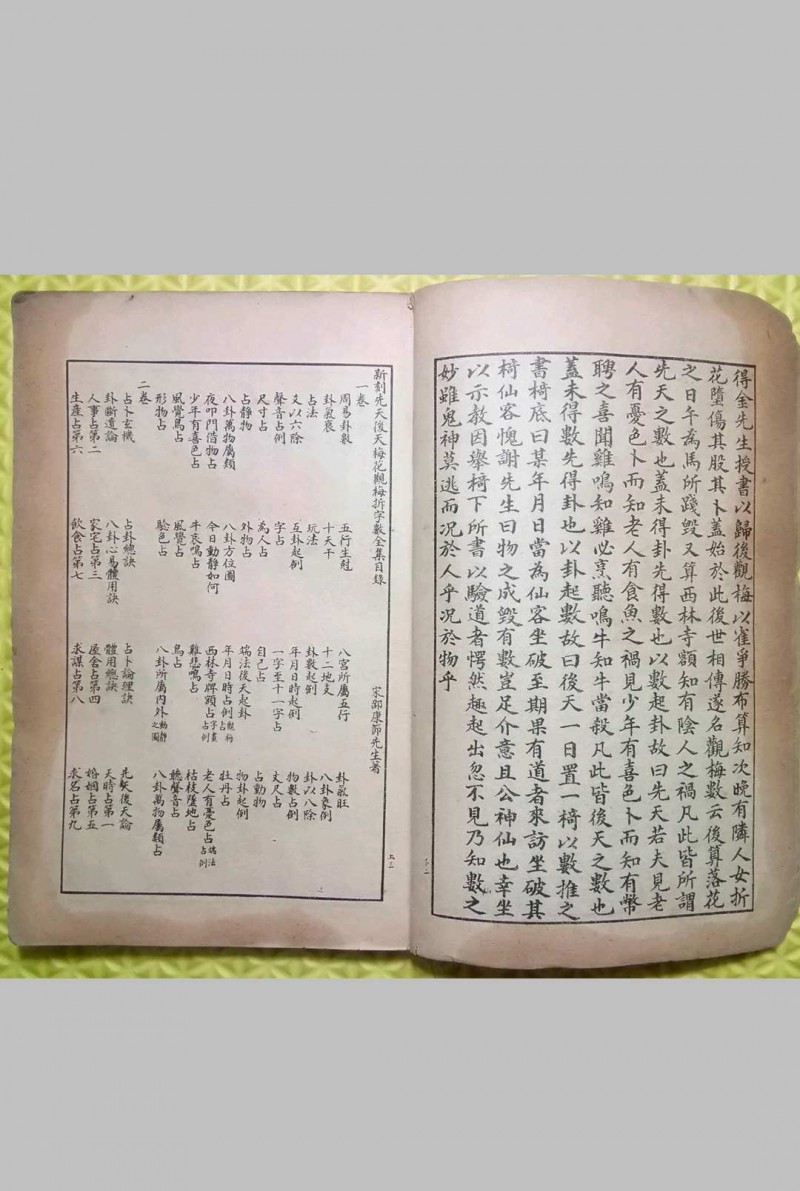 得金先生授書以歸後觀梅以雀爭勝布算知次晚有隣人女折
花墮傷其股其卜蓋始於此後世相傳遂名觀梅數云後算落花
之日午為馬所踐毀又算西林寺額知有陰人之禍凡此皆所謂
先天之數也蓋未得卦先得數也以數起卦故曰先天若夫見老
人有憂色卜而知老人有食魚之禍見少年有喜色卜而知有幣
聘之喜聞雞鳴知雞必烹聽鳴牛知牛當殺凡此皆後天之數也
蓋未得數先得卦也以卦起數故曰後天一日置一椅以數推之
書椅底曰某年月日當為仙客坐破至期果有道者來訪坐破其
椅仙客愧謝先生曰物之成毀有數豈足介意且公神仙也幸坐
以示教因舉椅下所書以驗道者愕然趣起出忽不見乃知數之
妙雖鬼神莫逃而況於人乎況於物乎
新刻先天後天梅花觀梅拆字數全集目錄
宋邵康節先生著
一卷
周易卦數 五行生尅 八宮所屬五行 卦氣旺
卦氣衰 十天干 十二地支 八卦象例
占法 玩法 卦數起例 卦以八除
又以六除 互卦起例 年月日時起例 物數占例
聲音占例 字占 一字至十一字占 丈尺占
尺寸占 為人占 自己占 占動物
占靜物 外物占 端法後天起卦 物卦起例
八卦萬物屬類 八卦方位圖 年月日時占例觀梅占例 牡丹占
夜叩門借物占 今日動靜如何 西林寺牌額占字畫占例 老人有憂色占端法占例
少年有喜色占 牛哀鳴占 雞悲鳴占 枯枝墜地占
風覺鳥占 風覺占 鳥占 聽聲音占
形物占 驗色占 八卦所屬內外動靜之圖 八卦萬物屬類占
二卷
占卜玄機 占卦總訣 占卜論理訣 先天後天論
卦斷遺論 八卦心易體用訣 體用總訣 天時占第一
人事占第二 家宅占第三 屋舍占第四 婚姻占第五
生產占第六 飲食占第七 求謀占第八 求名占第九